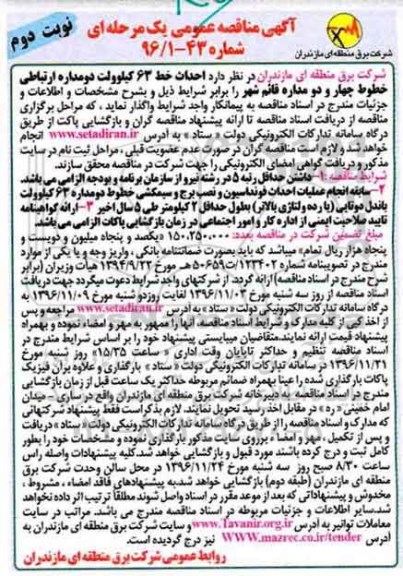 نوبت دوم
آگهی مناقصه عمومی یک مرحله ای
شماره ۴۳-۹۶/۱
شرکت برق منطقه ای مازندران
شرکت برق منطقه ای مازندران در نظر دارد احداث خط ۶۳ کیلوولت دومداره ارتباطی
خطوط چهار و دو مداره قائم شهر را برابر شرایط ذیل و بشرح مشخصات و اطلاعات و
جزئیات مندرج در اسناد مناقصه به پیمانکار واجد شرایط واگذار نماید ، که مراحل برگزاری
مناقصه از دریافت اسناد مناقصه تا ارائه پیشنهاد مناقصه گران و بازگشایی پاکت از طریق
درگاه سامانه تدارکات الکترونیکی دولت « ستاد » به آدرس www.setadiran.ir انجام
خواهد شد و لازم است مناقصه گران در صورت عدم عضویت قبلی ، مراحل ثبت نام در سایت
مذکور و دریافت گواهی امضای الکترونیکی را جهت شرکت در مناقصه محقق سازند.
شرایط مناقصه: ۱- داشتن حداقل رتبه ۵ در رشته نیرو از سازمان برنامه و بودجه الزامی می باشد.
۲- سابقه انجام عملیات احداث فونداسیون و نصب برج و سیمکشی خطوط دومداره ۶۳ کیلوولت
باندل دوتایی (یا رده ولتاژی بالاتر) بطول حداقل ۲ کیلومتر طی ۵ سال اخیر ۳- ارائه گواهینامه
تایید صلاحیت ایمنی از اداره کار و امور اجتماعی در زمان بازگشایی پاکات الزامی می باشد.
مبلغ تضمین شرکت در مناقصه بعدد: ۱۵۰.۲۵۰.۰۰۰ «یکصد و پنجاه میلیون و دویست و
پنجاه هزار ریال تمام» میباشد که باید بصورت ضمانتنامه بانکی، واریز وجه و یا یکی از موارد
مندرج در تصویبنامه شماره ۱۲۳۴۰۲/ت۵۰۶۵۹ه مورخ ۱۳۹۴/۹/۲۲ هیأت وزیران (برابر
شرح مندرج در اسناد مناقصه) ارائه گردد. از شرکتهای واجد شرایط دعوت میگردد جهت دریافت
اسناد مناقصه از روز سه شنبه مورخ ۱۳۹۶/۱۱/۰۳ لغایت روز دوشنبه مورخ ۱۳۹۶/۱۱/۰۹ به
درگاه سامانه تدارکات الکترونیکی دولت «ستاد» به آدرس www.setadiran.ir مراجعه و پس
از اخذ کپی از کلیه مدارک و شرایط اسناد مناقصه آنها را ممهور به مهر و امضاء نموده و بهمراه
پیشنهاد قیمت ارائه نمایند. متقاضیان میبایستی پیشنهاد خود را بر اساس شرایط مندرج در
اسناد مناقصه تنظیم و حداکثر تا پایان وقت اداری « ساعت ۱۵/۳۵ » روز شنبه مورخ
۱۳۹۶/۱۱/۲۱ در سامانه تدارکات الکترونیکی دولت « ستاد » بارگذاری و علاوه بر آن فیزیک
پاکات بارگذاری شده را عینا بهمراه ضمائم مربوطه حداکثر یک ساعت قبل از زمان بازگشایی
مندرج در اسناد مناقصه به دبیرخانه شرکت برق منطقه ای مازندران واقع در ساری - میدان
امام خمینی «ره» در مقابل اخذ رسید تحویل نمایند. لازم بذکر است فقط پیشنهاد شرکتهائی
که مدارک و اسناد مناقصه را از طریق درگاه سامانه تدارکات الکترونیکی دولت «ستاد» دریافت
و پس از تکمیل ، مهر و امضاء بر روی سایت مذکور بارگذاری نموده و مشخصات خود را بطور
کامل ثبت و درج کرده باشند مورد قبول و بازگشایی خواهد شد. کلیه پیشنهادات واصله راس
ساعت ۸/۳۰ صبح روز سه شنبه مورخ ۱۳۹۶/۱۱/۲۴ در محل سالن وحدت شرکت برق
منطقه ای مازندران (طبقه دوم) بازگشایی خواهد شد. به پیشنهادهای فاقد امضاء ، مشروط ،
مخدوش و پیشنهاداتی که بعد از موعد مقرر در اسناد واصل شوند مطلقا ترتیب اثر داده نخواهد
شد. سایر اطلاعات و جزئیات مربوطه در اسناد مناقصه مندرج می باشد. مراتب در سایت
معاملات توانیر به آدرس www.Tavanir.org.ir و سایت شرکت برق منطقه ای مازندران به
آدرس WWW.mazrec.co.ir/tender نیز درج گردیده است.
روابط عمومی شرکت برق منطقه ای مازندران